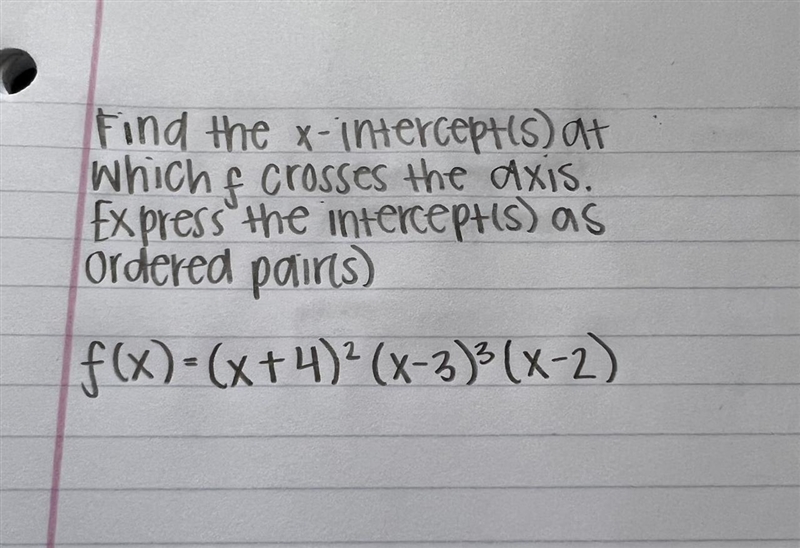 Find the x-intercept(s) at
which f crosses the axis.
Express the intercept(s) as
ordered pair(s)
f(x)=(x+4)²(x-3)³(x-2)